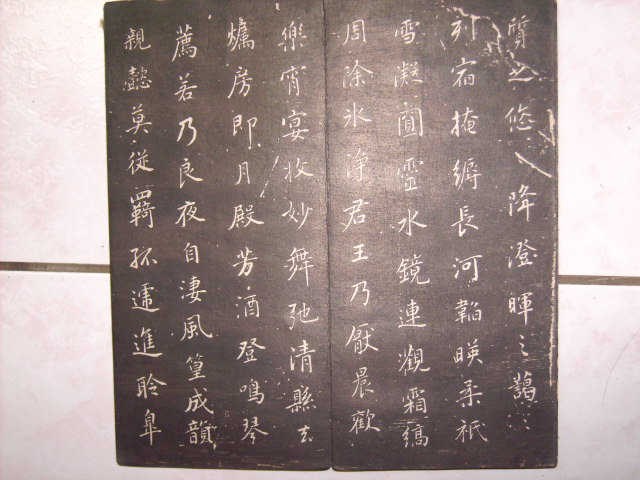 質之悠〻降澄暉之藹〻
列宿掩縟長河韜暎柔祇
雪凝圓靈水鏡連觀霜縞
周除氷淨君王乃厭晨歡
樂宵宴收妙舞弛清縣去
爥房即月殿芳酒登鳴琴
薦若乃良夜自淒風篁成韻
親懿莫從羈孤遞進聆皐